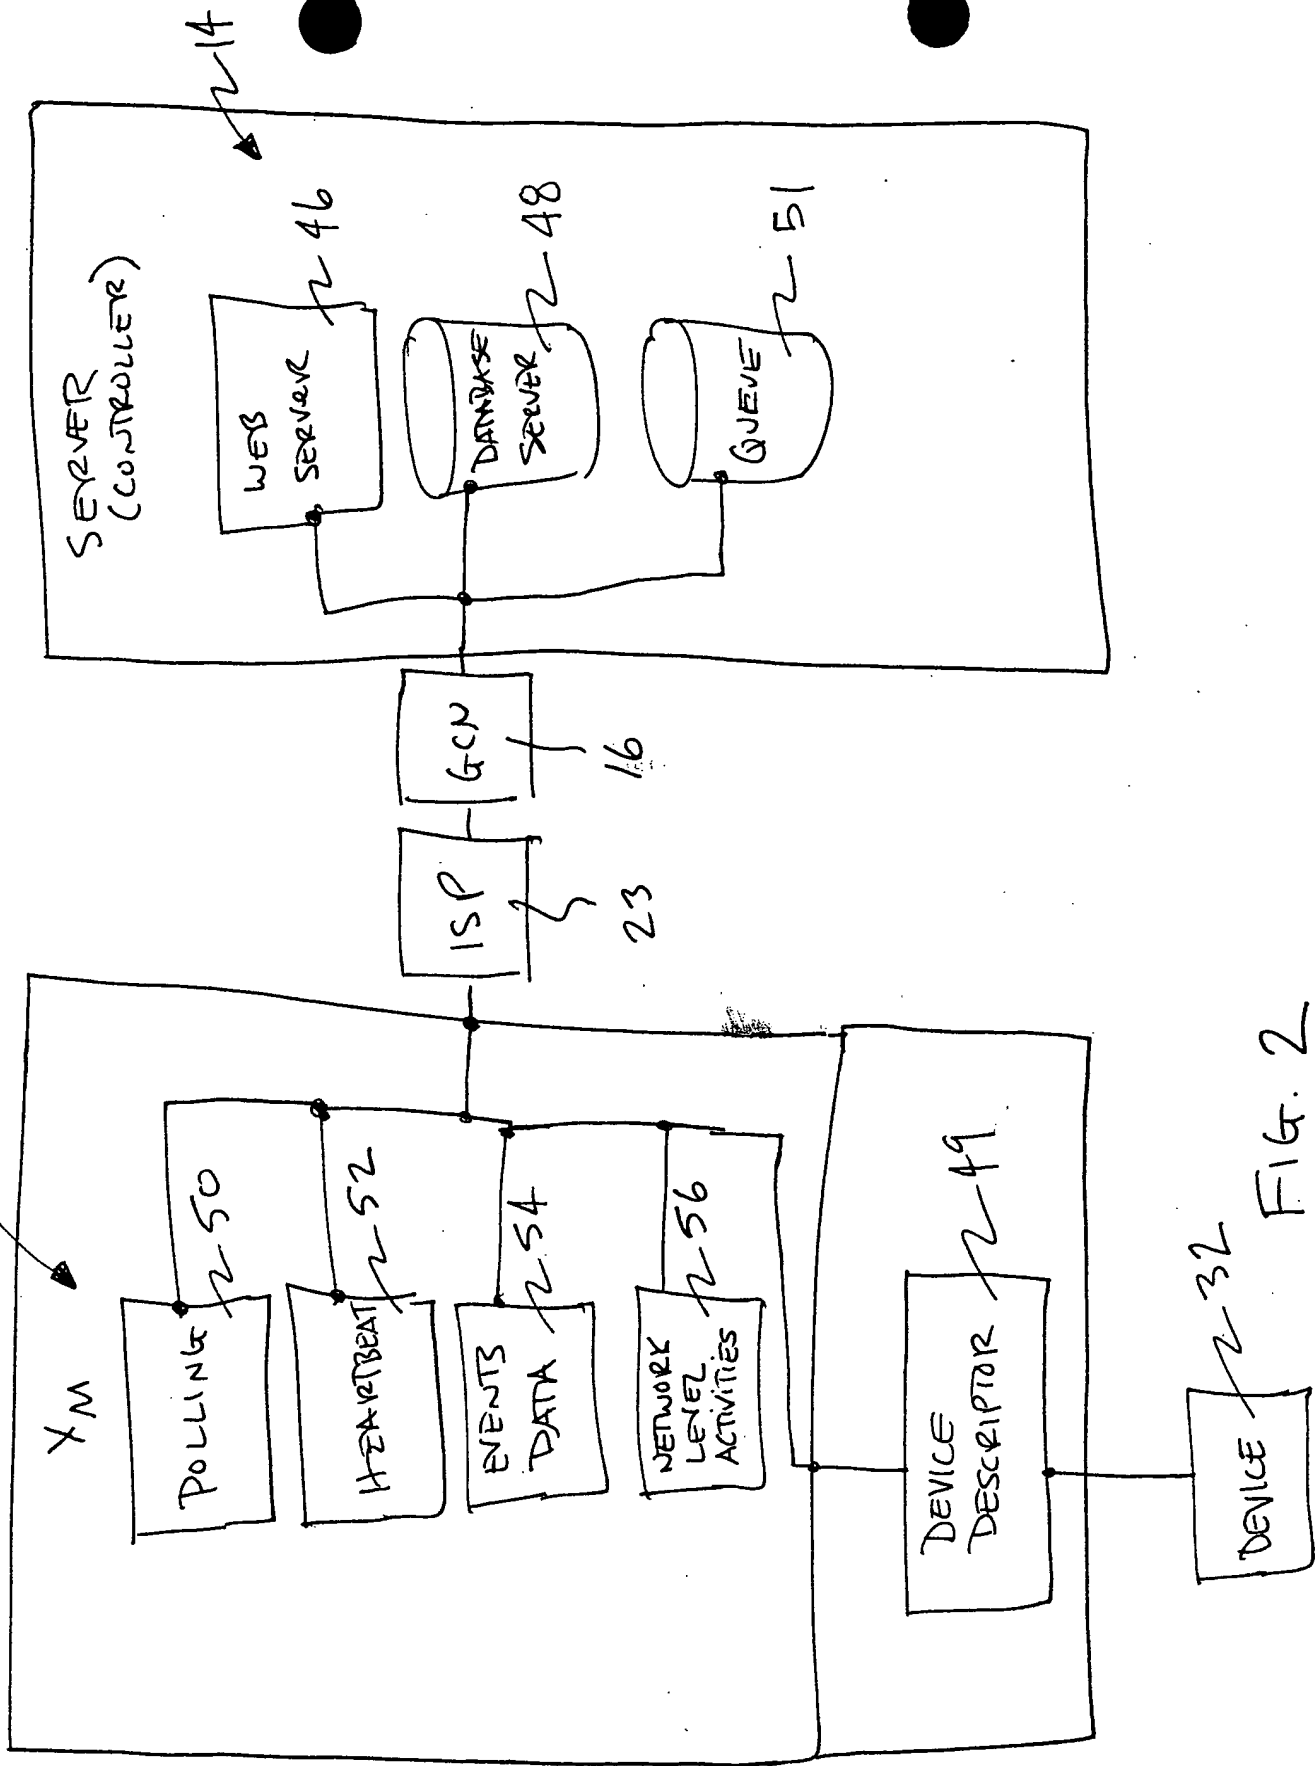 X M
POLLING
50
HEARTBEAT
52
EVENTS
DATA
54
NETWORK
LEVEL
ACTIVITIES
56
DEVICE
DESCRIPTOR
49
DEVICE
32
ISP
23
GCN
16
SERVER
(CONTROLLER)
14
WEB
SERVER
46
DATABASE
SERVER
48
QUEUE
51
FIG. 2